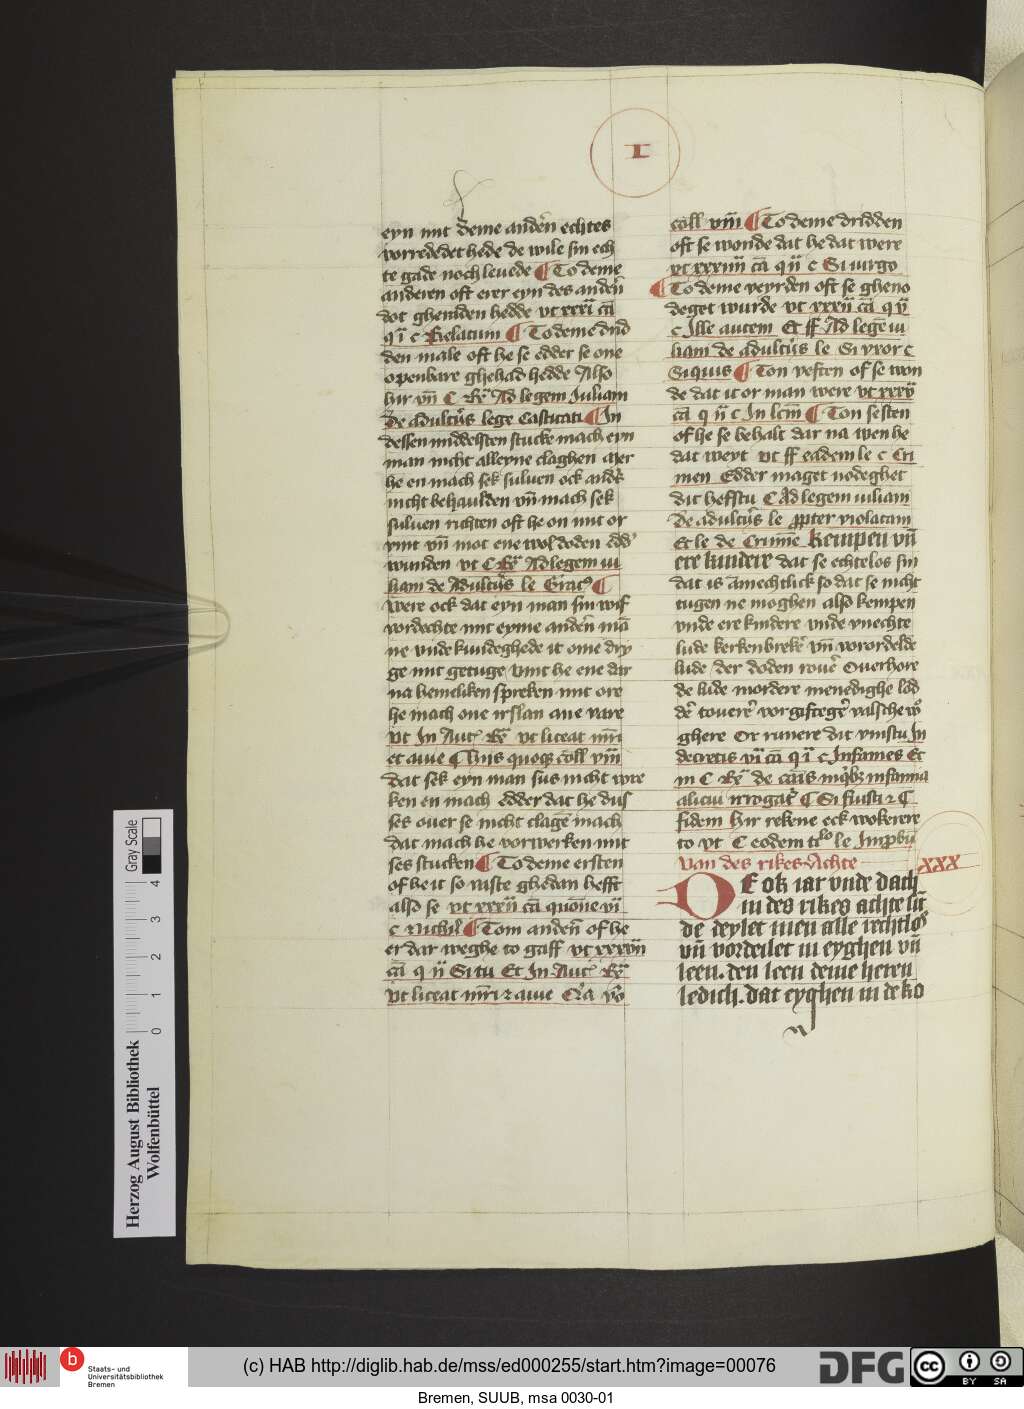 I
eyn mit deme anderen echtes
vorrededet hede de wile sin ech
te gade noch leuede ¶ To deme
anderen oft erer eyn des anderen
dot ghemiden hedde vt xxxi cā
q i c Relatum ¶ To deme drid
den male oft he se edder se one
openbare ghehad hedde Also
hir vn̄ C R Ad legem Iuliam
De adulteriis lege Castitati ¶ In
dessen middelsten stucke mach eyn
man nicht alleyne claghen mer
he en mach sek suluen ock
nicht behaulden vn̄ mach sek
suluen richten oft he on mit or
vint vn̄ mot ene wol doden
wunden vt C R Ad legem iu
liam de Adulteriis le Grac ¶
were ock dat eyn man sin wif
vordechte mit eyme anderen mā
ne vnde kundeghede it ome dry
ge mit getuge vint he ene dar
na hemeliken spreken mit ore
he mach one irslan ane vare
vt In Aut R vt liceat mr̄i
et auie ¶ Hijs quoque coll viii
dat sek eyn man sus nicht wre
ken en mach edder dat he dus
ses ouer se nicht clagē mach
dat mach he vorwerken mit
ses stucken ¶ To deme ersten
of he it so raste ghedan hefft
also se vt xxxii cā quōne vi
c Nichil ¶ Tom anderen of he
er dar weghe to gaff vt xxxvii
cā q ii Si tu Et In Aut R
vt liceat mr̄i et auie
coll viii ¶ To deme dridden
oft se wonde dat he dat were
vt xxxiiii cā q ii c Si virgo
¶ To deme veyrden oft se gheno
deget wurde vt xxxii cā q v
c Ille autem Et ff Ad legē iu
liam de adulteriis le Si vxor c
Si quis ¶ Ton veften of se won
de dat it or man were vt xxxv
cā q ii c In lcm̄ ¶ Ton sesten
of he se behalt dar na wen he
dat weyt vt ff eadem le c Cri
men Edder maget nodeghet
dit hefstu C Ad legem iuliam
De adulteriis le ꝓpter violatam
Et le de Crimīe Kempen vn̄
ere kindere dat se echtelos sin
dat is āmechtlick so dat se nicht
tugen ne moghen also kempen
vnde ere kindere vnde vnechte
lude kerkenbreker vn̄ vorordelde
lude der doden rouer Ouerhore
de lude mordere menedighe lod
der touerer vorgifteger valsche
ghere Or runere dit vinstu In
decretis vi cā q i c Infames Et
in C R de causis infamia
alicui irrogatur C Si fiusti et C
fidem Hir rekene eck wokerere
to vt C eodem titlo le Improbū
Van des rikes Achte
XXX
DE ok iar vnde dach
in des rikes achte sit
de deylet men alle rechtlos
vn̄ vordeilet in eyghen vn̄
leen. den leen deme heren
ledich. dat eyghen in de ko
Herzog August Bibliothek
Wolfenbüttel
Gray Scale
0 1 2 3 4
b Staats- und
Universitätsbibliothek
Bremen
(c) HAB http://diglib.hab.de/mss/ed000255/start.htm?image=00076
DFG
cc BY SA
Bremen, SUUB, msa 0030-01